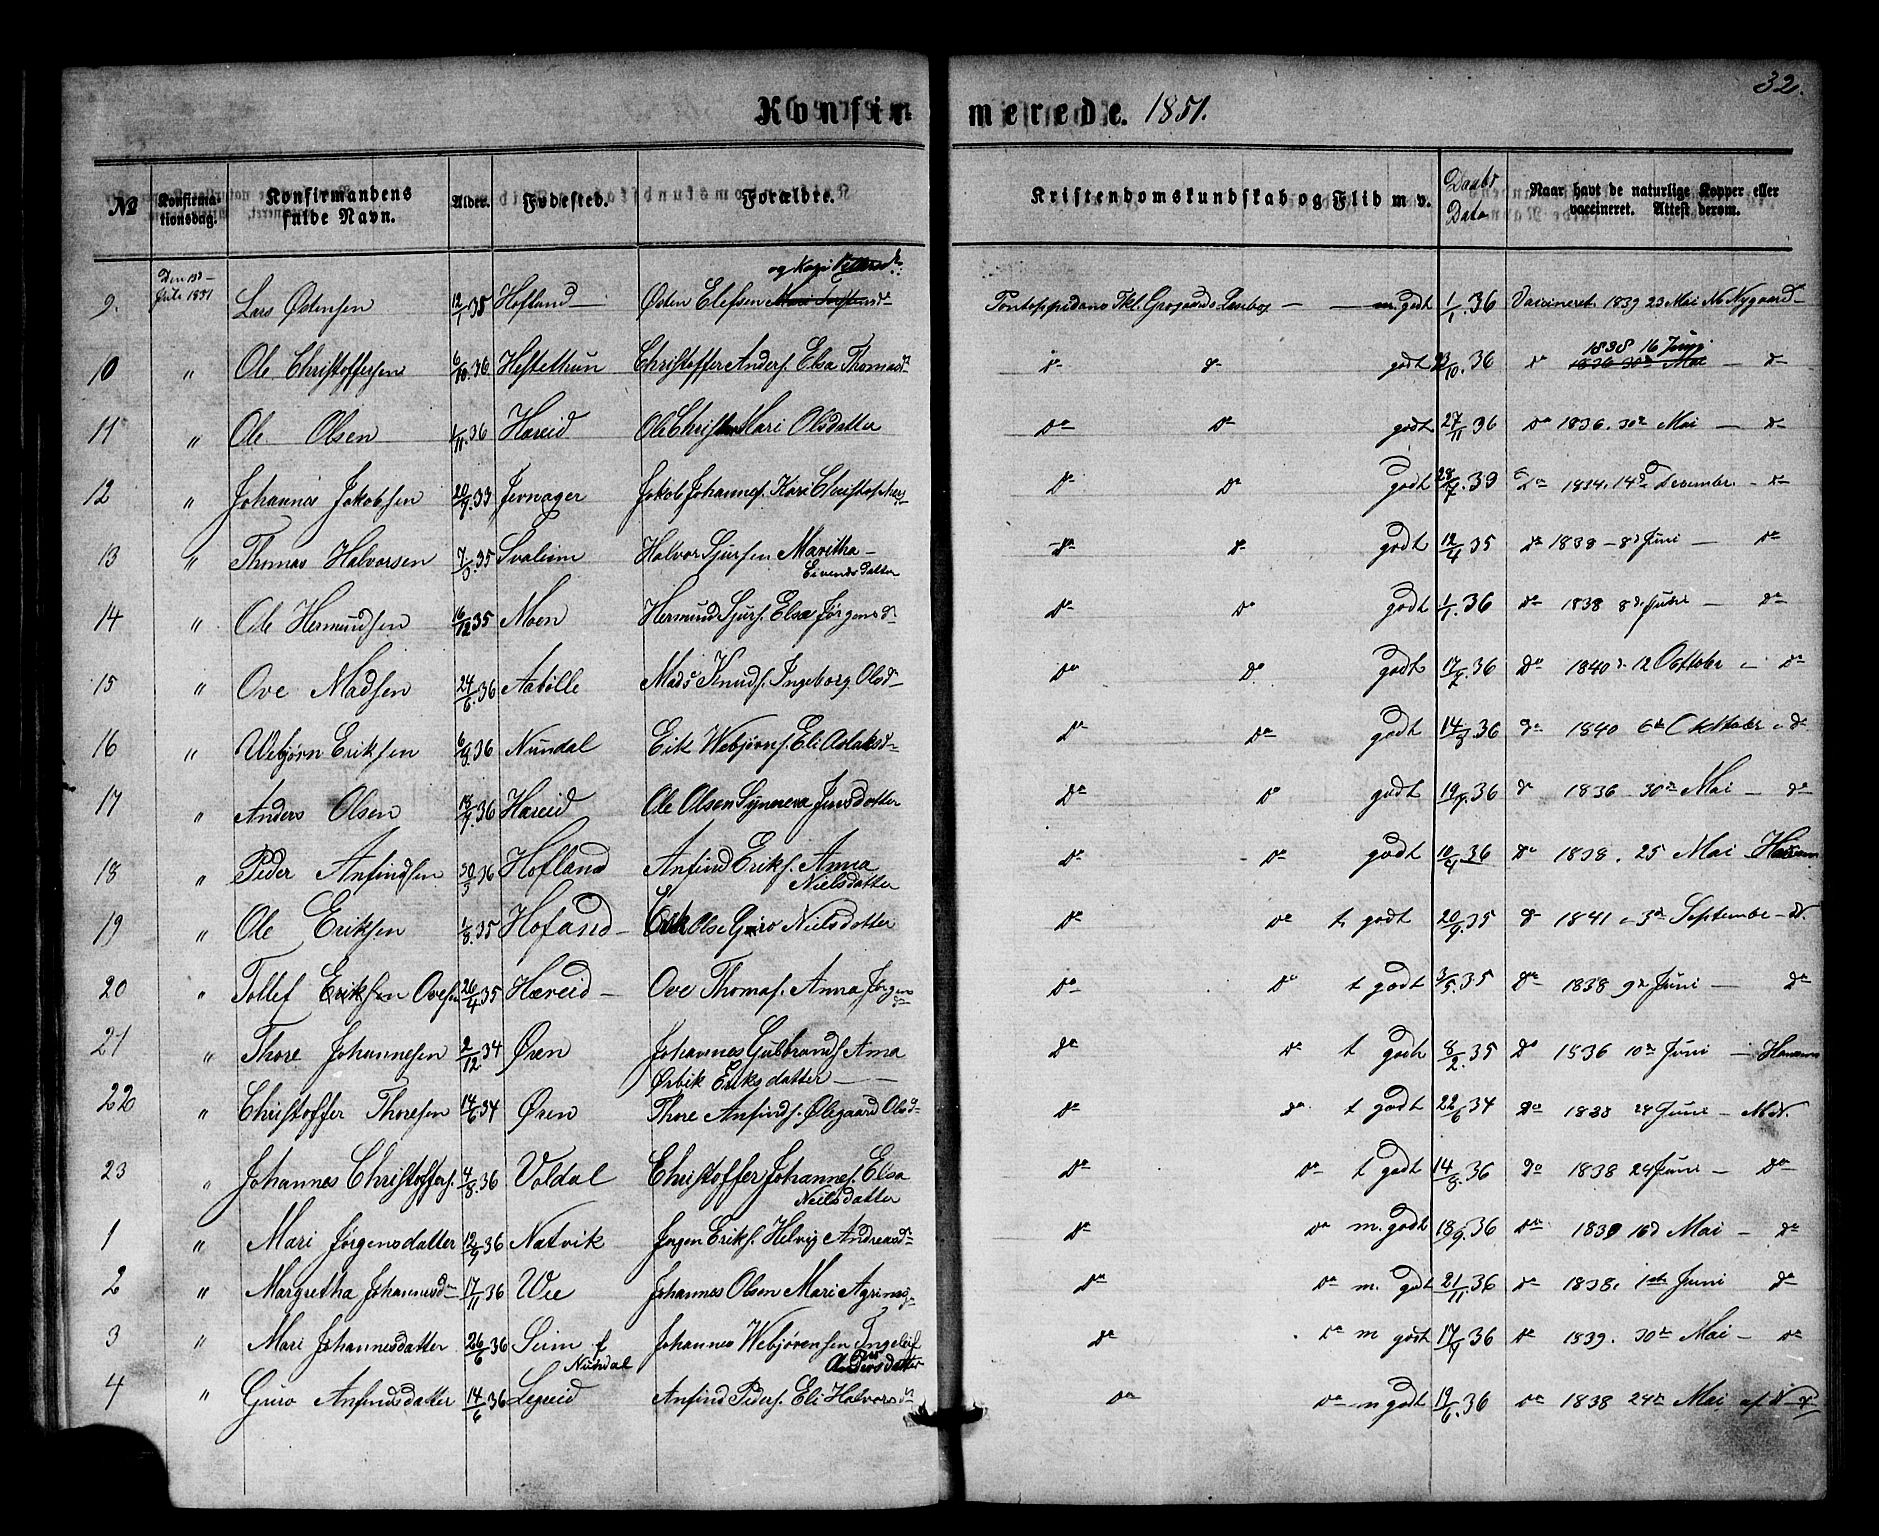 32.
Konfirmerede. 1851.
№ Konfirmationsdag. Konfirmandens fulde Navn. Alder. Fødested. Forældre. Kristendomskundskab og Flid m v. Daabs Data Naar havt de naturlige Kopper eller vaccineret. Attest derom.
9. Lars Østensen 12/1 35 Hofland Østen Elefsen og Kari m. godt 1/1. 36 Vaccineret 1839 23 Mai N. Nygaard
10 " Ole Christoffersen 6/10. 36 Hestethun Christoffer Anders. Elsa Thomasd godt /10. 36 1838 16 Juni
11 " Ole Olsen 1/11 36 Hæreid Ole Christ Mari Olsdatter Do Do godt 27/11 36 Do 1836. 30te Mai – do
12 " Johannes Jakobsen 20/7. 33 Jernager Jakob Johannes. Kari Do Do godt 28/7. 39 Do 1834. 14de December
13 " Thomas Halvorsen 7/3. 35 Svalem Halvor Sjursen Maritha Eivendsdatter do do godt 12/4 35 do 1838 – 8d Juni – do
14 " Ole Hermundsen 16/12 35 Moen Hermund Sjurs. Elsa Jørgensd Do Do godt 1/1. 36 do 1838 8d Juni – do
15 " Ove Madsen 24/6. 36 Aabølle Mads Knuds. Ingeborg Olsd Do Do godt 17/7 36 do 1840 12 Octtober do
16 " Webjørn Eriksen 6/8. 36 Nundal Erik Webjørns. Eli Aslaksd Do Do godt 14/8 36 do 1840 6te Okttober do
17 " Anders Olsen 18/7. 36 Hæreid Ole Olsen Synneva Jensdatter Do Do godt 19/7. 36 do 1836 30te Mai – do
18 " Peder Anfindsen 30/3 36 Hofland Anfind Eriks. Anna Nielsdatter Do Do godt 10/4 36 do 1838. 25 Mai
19 " Ole Eriksen 1/8. 35 Hofand Erik Olse Guro Nielsdatter Do Do t. godt 20/9. 35 do 1841 3d September N.
20 " Tollef Eriksen Ovesen 26/4 35 Hæreid Ove Thomas. Anna Jørgens Do Do t godt 3/5. 35 Do 1838 9de Juni – do
21 " Thore Johannesen 2/12. 34 Øren Johannes Gulbrands Anna Eriksdatter Do Do t godt 8/2. 35 Do 1836 10de Juni
22 " Christoffer Thoresen 14/6 34 Øren Thore Anfinds. Ølegaard Olsd Do do t godt 22/6 34 do 1838 24 Juni – N.
23 " Johannes Christoffers. 4/8. 36 Voldal Christoffer Johannes. Elsa Nielsdatter Do Do t godt 14/8. 36 do 1838 24 Juni – Do
1 " Mari Jørgensdatter 12/9 36 Natvik Jørgen Eriks. Helvig Andreasd Do Do m. godt 18/9. 36 Do 16d Mai – do
2 " Margretha Johannesd 17/11 36 Wee Johannes Olsen Mari Do Do m. godt 21/11. 36 do 1838. 1ste Juni do
3 " Mari Johannesdatter 26/6 36 Seim f Nundal Johannes Webjørensen Ingeleif do Do m godt 17/7 36 Do 1839. 30te Mai – Do
4 " Guro Anfindsdatter 14/6 36 Legreid Anfind Peders. Eli Halvorsd Do Do m godt 19/6. 36 Do 1838 24de Mai af N